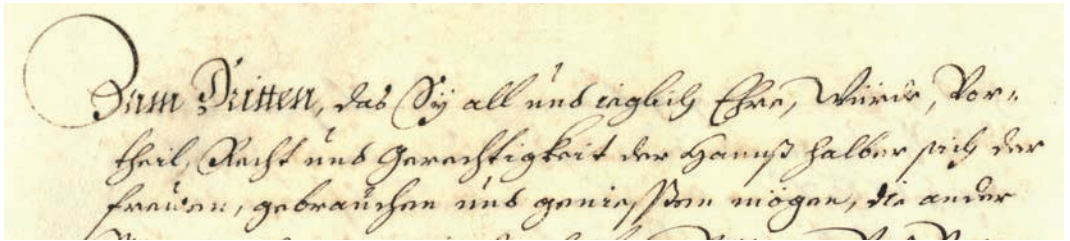 Zum Dritten, das Sÿ all und ieglich Ehre, Würde, Vor-
theil, Recht und Gerechtigkeit der Hannß halber sich der
freüen, gebrauchen und geniessen mögen, die ander